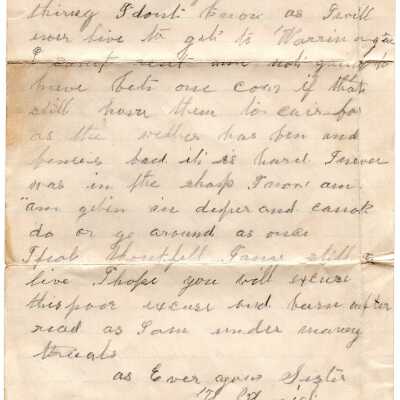 thiney I dont know as I will
ever live to get to Warrington
I cant rent am not going to
have bets one cow if that
still have them to cair for
as the wether has ben and
fences bad it is hard I never
was in the shap I now am
am getin in deper and canot
do or go around as once
I feal thankfull I am still
live I hope you will excuse
this poor excuse and burn after
read as I am under maney
trials
as Ever your Sister